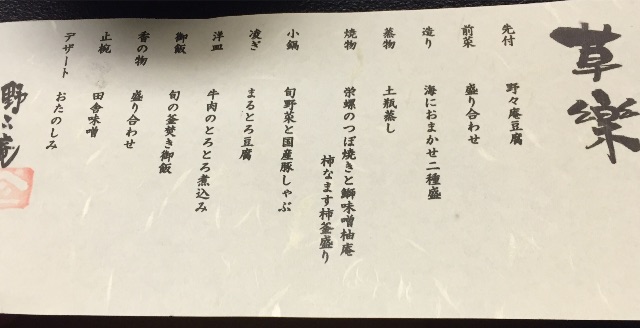 草樂
先付 野々庵豆腐
前菜 盛り合わせ
造り 海におまかせ二種盛
蒸物 土瓶蒸し
焼物 栄螺のつぼ焼きと鰤味噌柚庵
柿なます柿釜盛り
小鍋 旬野菜と国産豚しゃぶ
凌ぎ まるとろ豆腐
洋皿 牛肉のとろとろ煮込み
御飯 旬の釜焚き御飯
香の物 盛り合わせ
止椀 田舎味噌
デザート おたのしみ
野々庵